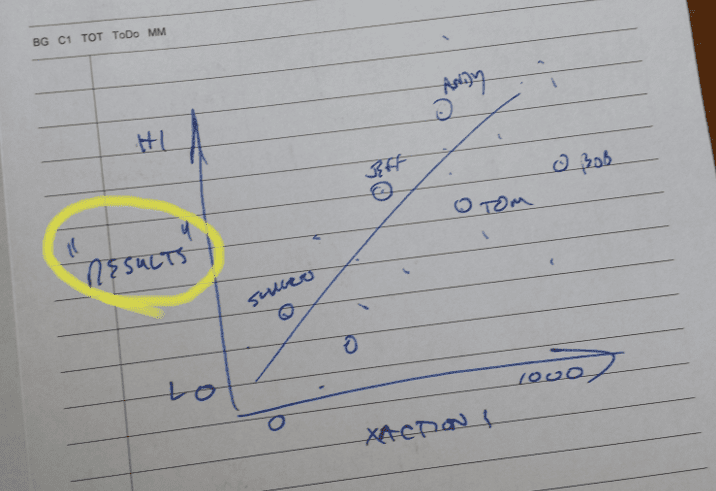 BG C1 TOT ToDo MM
ANDY
HI
JEFF
BOB
TOM
"RESULTS"
LO
1000
O
XACTION 1